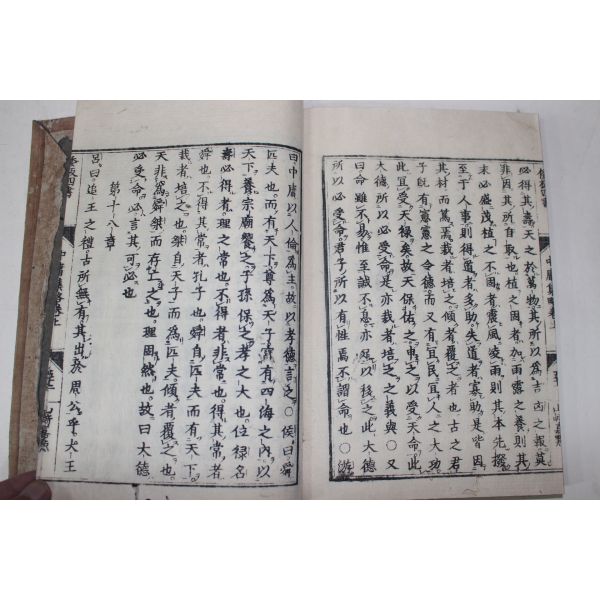 倭板四書
中庸輯略卷上
山崎嘉點
必得其壽天之於萬物其所以為吉凶之報莫
非因其所自取也植之固者加雨露之養則其
末必盛茂植之不固者震風凌雨則其本先撥
至于人事則得道者多助失道者寡助是皆因
其材而篤焉栽者培之傾者覆之者也古之君
子既有憲憲之令德而又有宜民宜人之大功
此宜受天祿矣故天保佑之申之以受天命此
大德所以必受命是亦栽者培之之義與○又
曰命雖不易惟至誠不息亦足以移之此大德
所以必受命君子所以有性焉不謂命也○游
曰中庸以人倫為主故以孝德言之○侯曰舜
匹夫也而有天下尊為天子富有四海之內以
天下養宗廟饗之子孫保之孝之大也位祿名
壽必得者理之常也不得者非常也得其常者
舜也不得其常者孔子也舜自匹夫而有天下
栽者培之也桀自天子而為匹夫傾者覆之也
天非為舜桀而存亡之也理固然也故曰大德
必受命必言其可必也
第十八章
呂曰追王之禮古所無有其出於周公乎大王